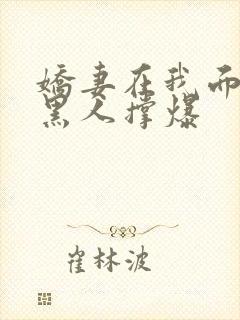 娇妻在我面
黑人撑爆
崔林波